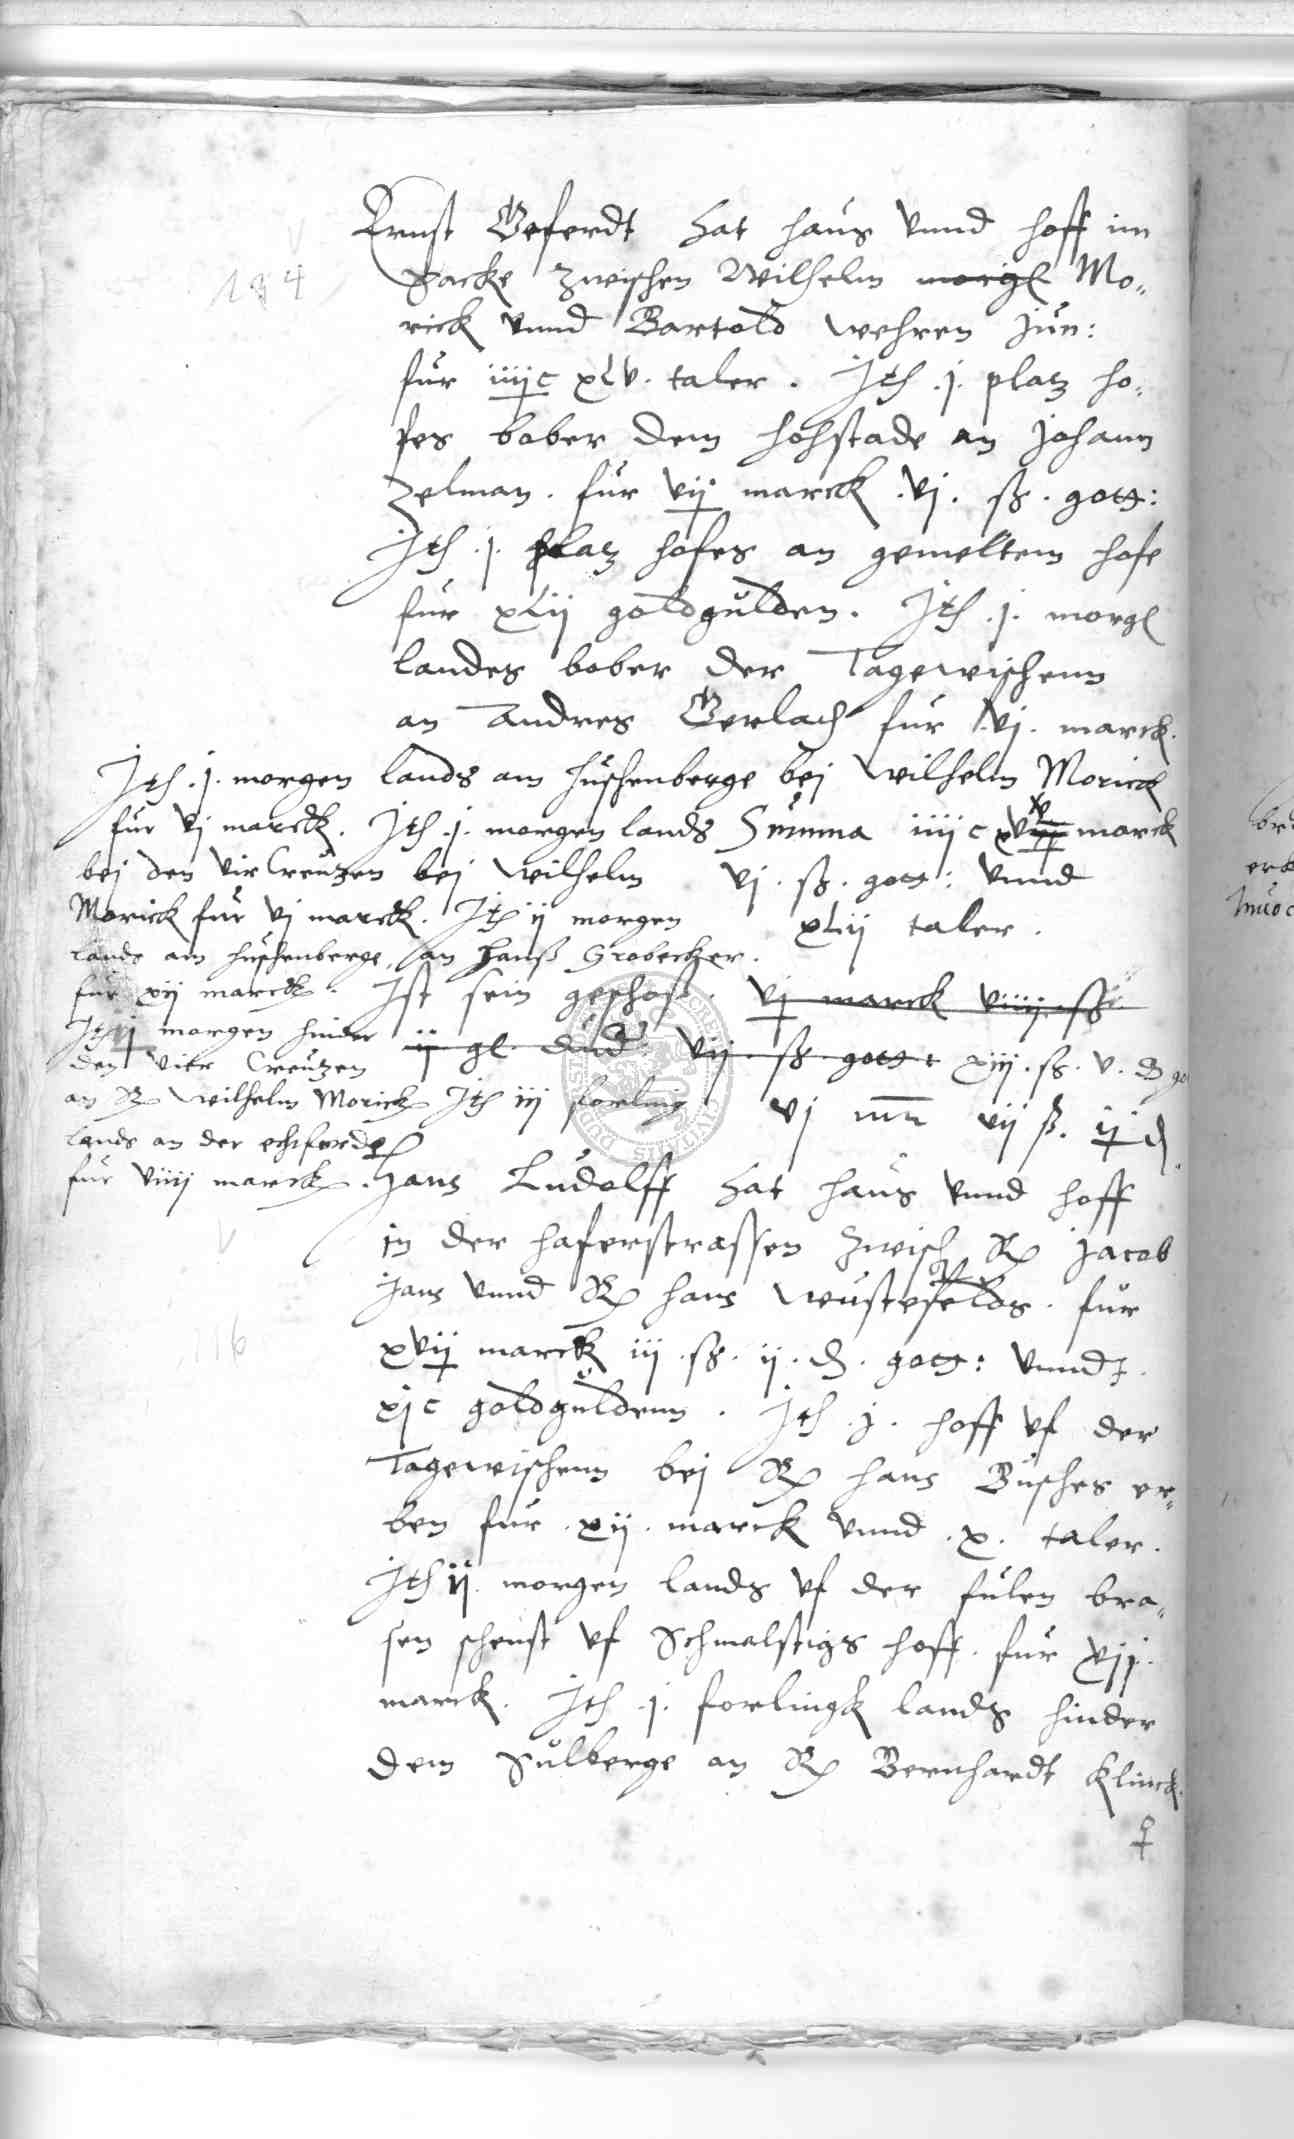 Ernst Geferdt hat haus vnnd hoff im
184
Sacke zwischen Wilhelm morgl Mo-
rick vnnd Bartold wehren jun:
fur iiijc xlv. taler. Jth .j. platz ho-
fes bober dem hohstade an johann
zelman. fur vij marck .vj. ß. gott:
Jth .j. platz hofes an gemeltem hofe
fur xlij goldgulden. Jth .j. morgl
landes bober der Tagewischenn
an Andres Gerlach fur .vj. marck.
Jth .j. morgen lands am huschenberge bej Wilhelm Morick
fur vj marck. Jth .j. morgen lands
bej den vir Creutzen bej Wilhelm
Morick fur vj marck. Jth ij morgen
lands am huschenberge, an Hanß Grobecker.
fur xij marck.
Jth ij morgen hinder
den vier Creutzen
an Wilhelm Morick Jth iij forling
lands an der echtferde
fur viiij marck.
Summa iiijc marck
vj. ß. gott: vnnd
xlij taler.
Ist sein geschoß. vj marck viiij. ß.
ij gl. dud. vij. ß. gott: xiij. ß. v. d
vj vij ß. ij d
Hans Ludolff hat haus vnnd hoff
in der haferstrassen zwisch Jacob
jans vnnd hans Wustefelds. fur
116
xvij marck iij .ß. ij. d. gott: vnndt.
xjc goldguldenn. Jth .j. hoff vf der
Tagewischenn bej hans Busches er-
ben fur .xij. marck vnnd .x. taler.
Jth ij. morgen lands vf der fulen bra-
sen schenst vf Schmalstigs hoff. fur xij.
marck. Jth .j. forlingk lands hinder
dem Sulberge an Bernhardt Klinck.